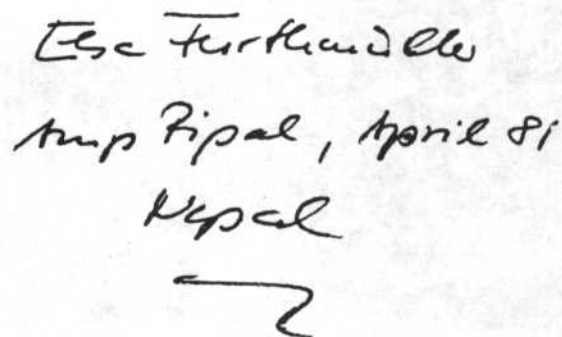 Elsa Furthmüller
Amp Pipal, April 81
Nepal